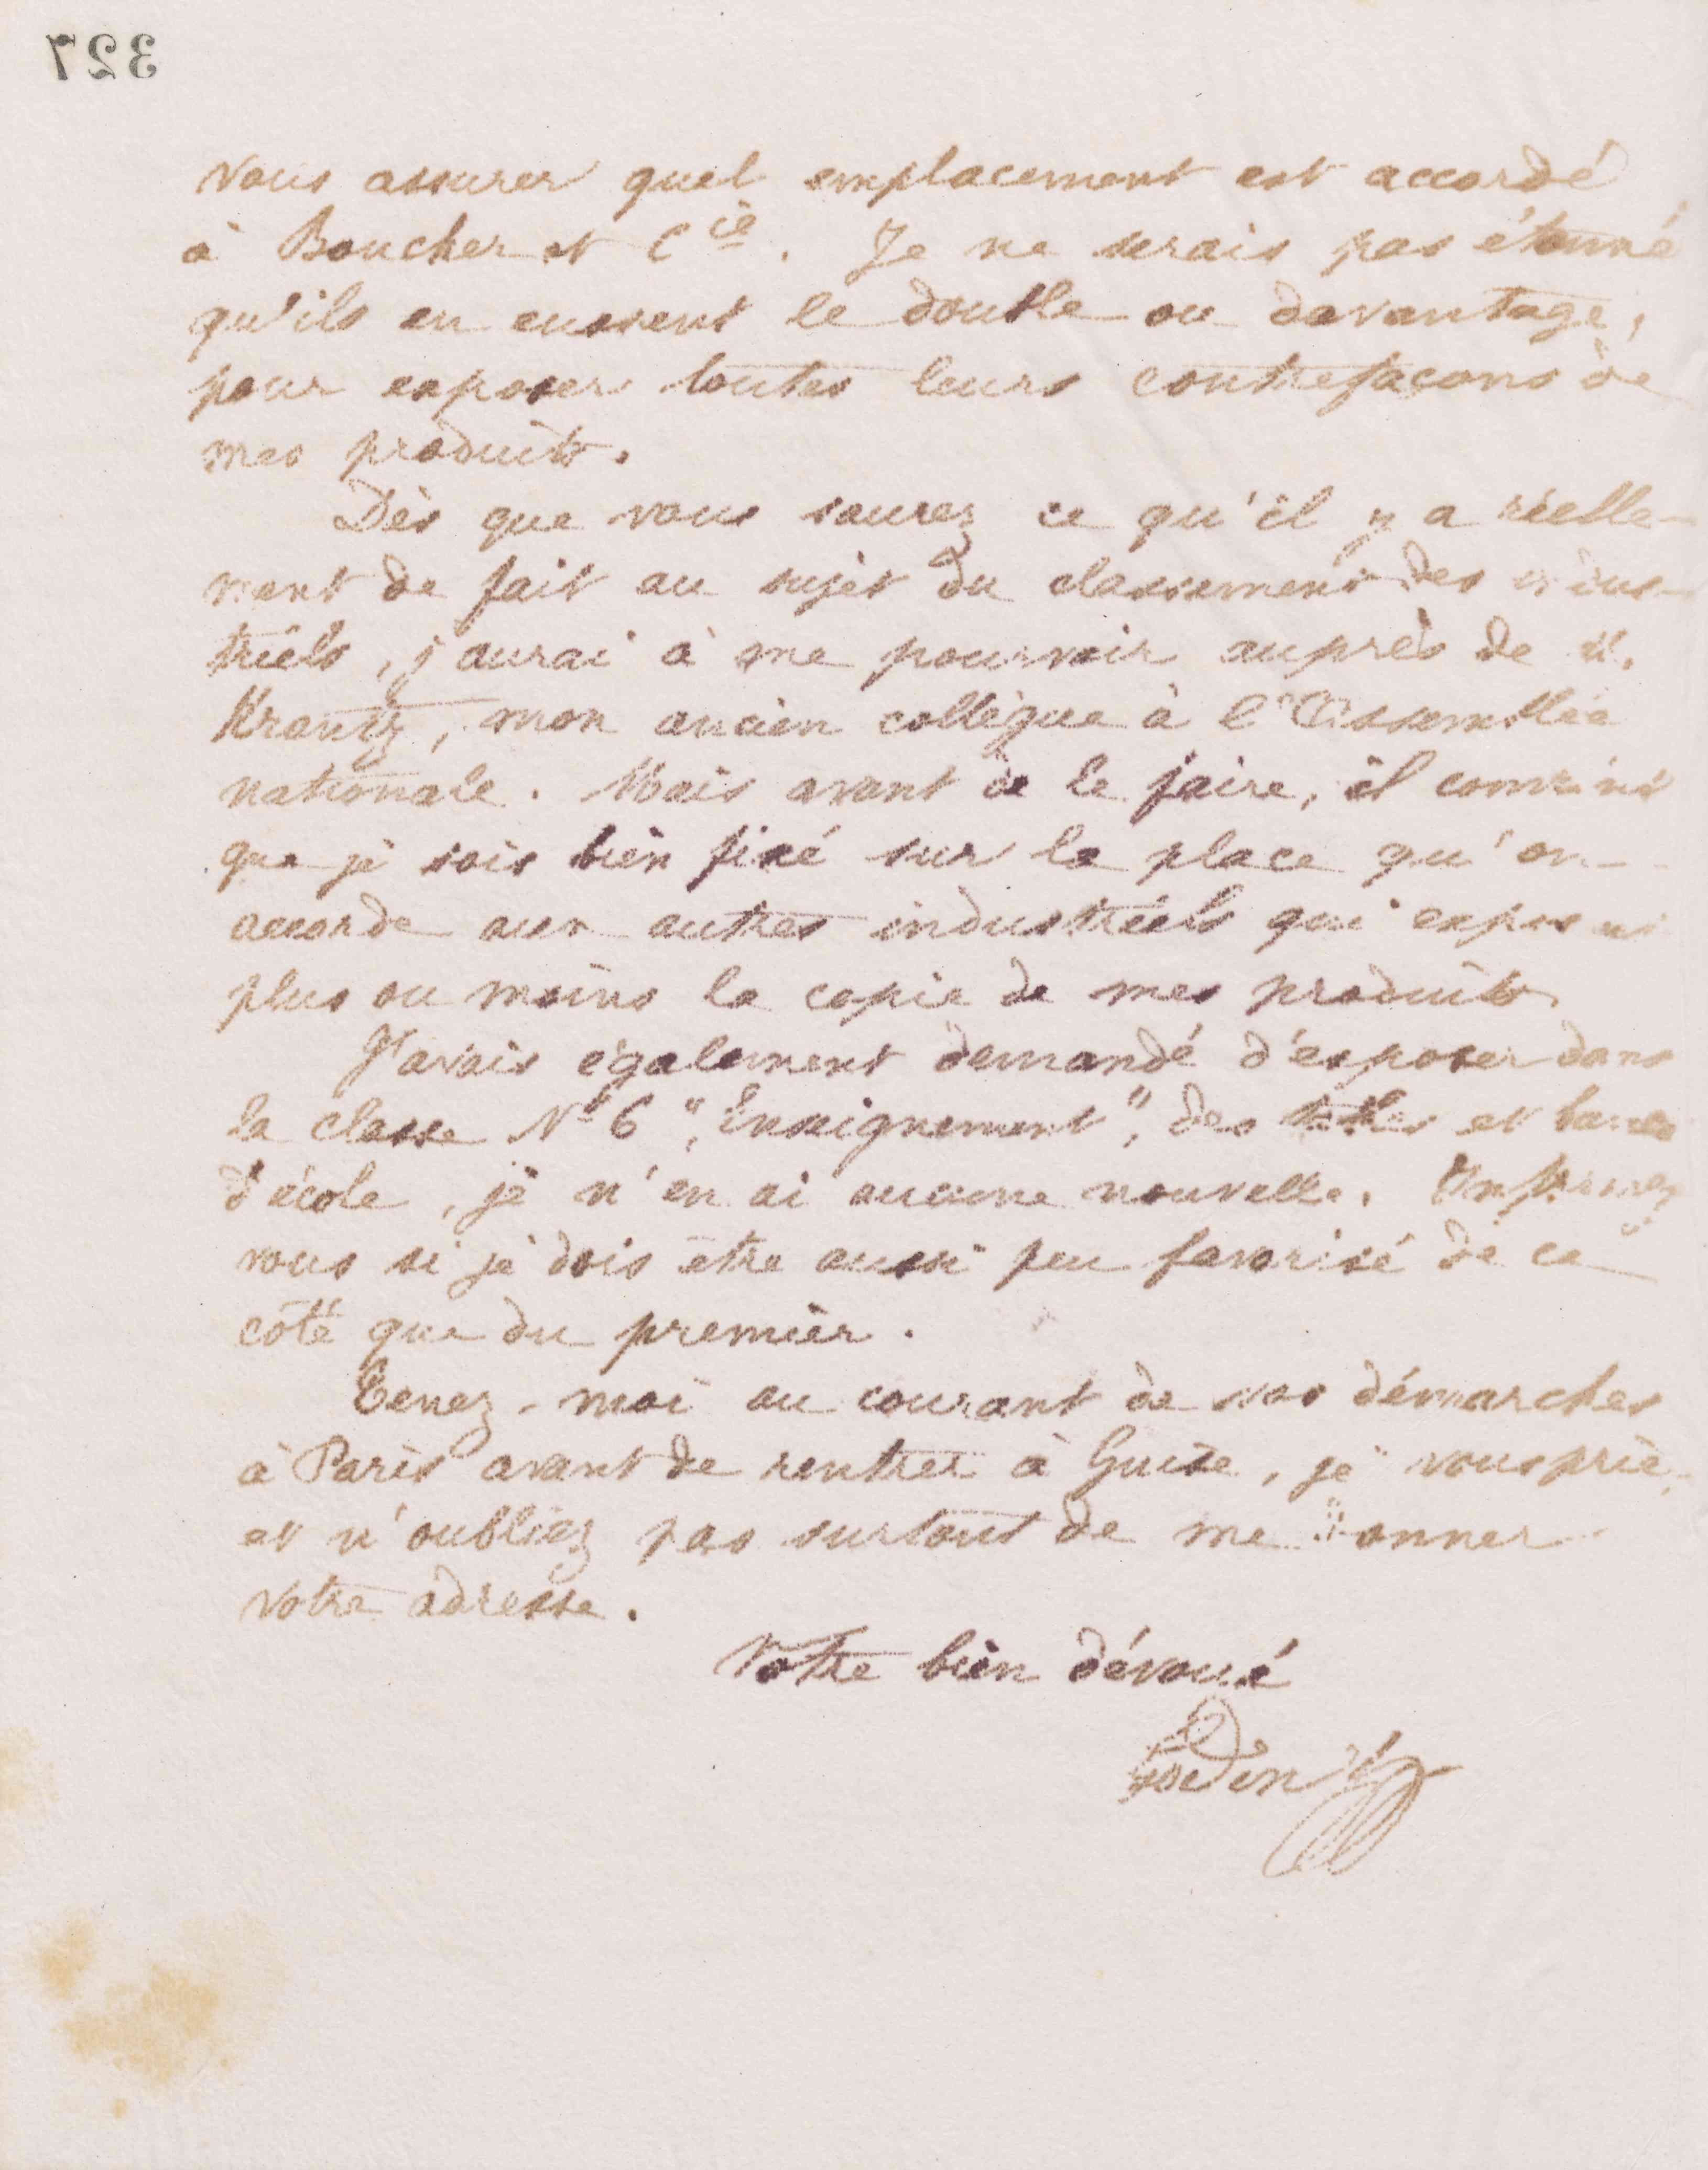 327
vous assurer quel emplacement est accordé
à Boucher et Cie. Je ne serais pas étonné
qu'ils en eussent le double ou davantage,
pour exposer toutes leurs contrefaçons de
mes produits.
Dès que vous saurez ce qu'il y a réelle-
ment de fait au sujet du classement des indus-
triels, j'aurai à me pourvoir auprès de M.
Krantz, mon ancien collègue à l'Assemblée
nationale. Mais avant de le faire, il convient
que je sois bien fixé sur la place qu'on
accorde aux autres industriels qui exposent
plus ou moins la copie de mes produits.
J'avais également demandé d'exposer dans
la classe No 6 "Enseignement", des tables et bancs
d'école, je n'en ai aucune nouvelle. Informez
vous si je dois être aussi peu favorisé de ce
côté que du premier.
Tenez-moi au courant de vos démarches
à Paris avant de rentrer à Guise, je vous prie,
et n'oubliez pas surtout de me donner
votre adresse.
Votre bien dévoué
Godin